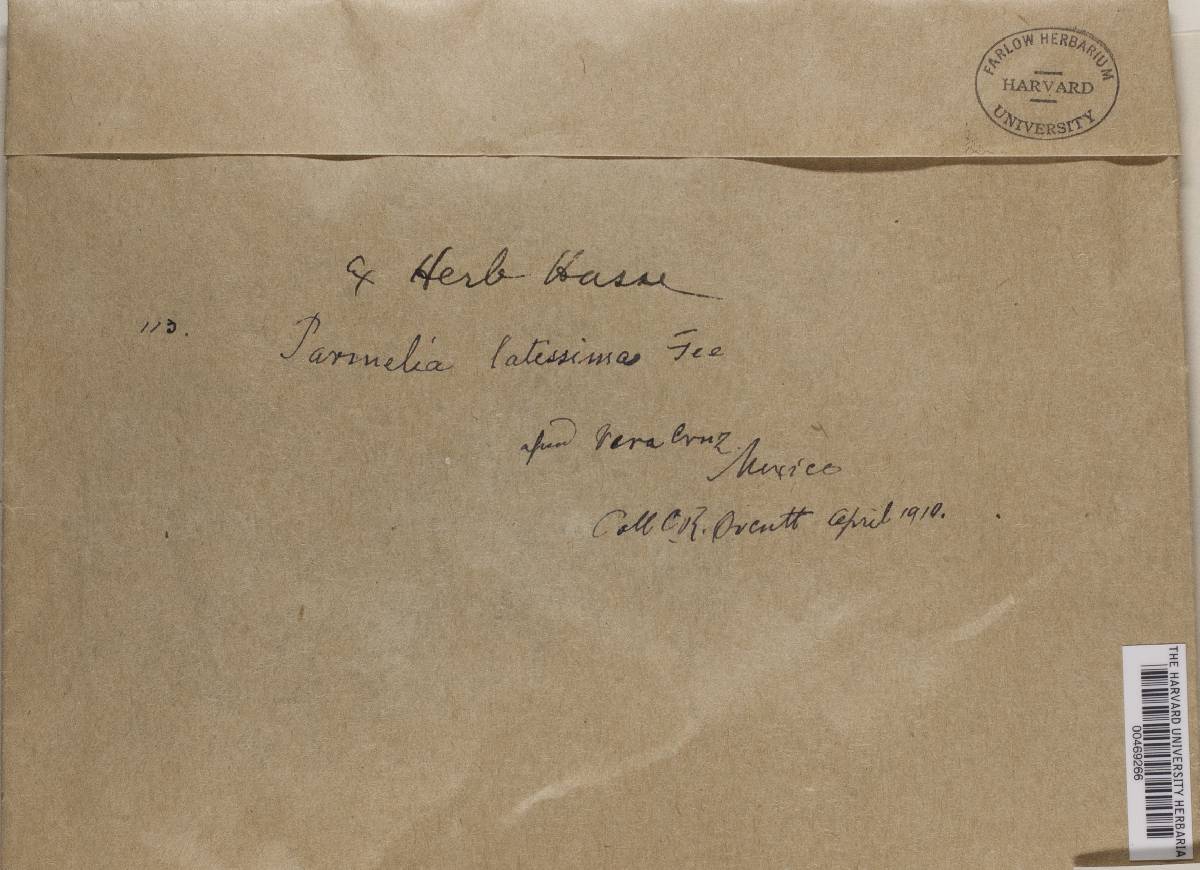 FARLOW HERBARIUM
HARVARD
UNIVERSITY
ex Herb Hasse
113.
Parmelia latissima Fee
apud Vera Cruz
Mexico
Coll C.R. Orcutt April 1910.
THE HARVARD UNIVERSITY HERBARIA
00469266